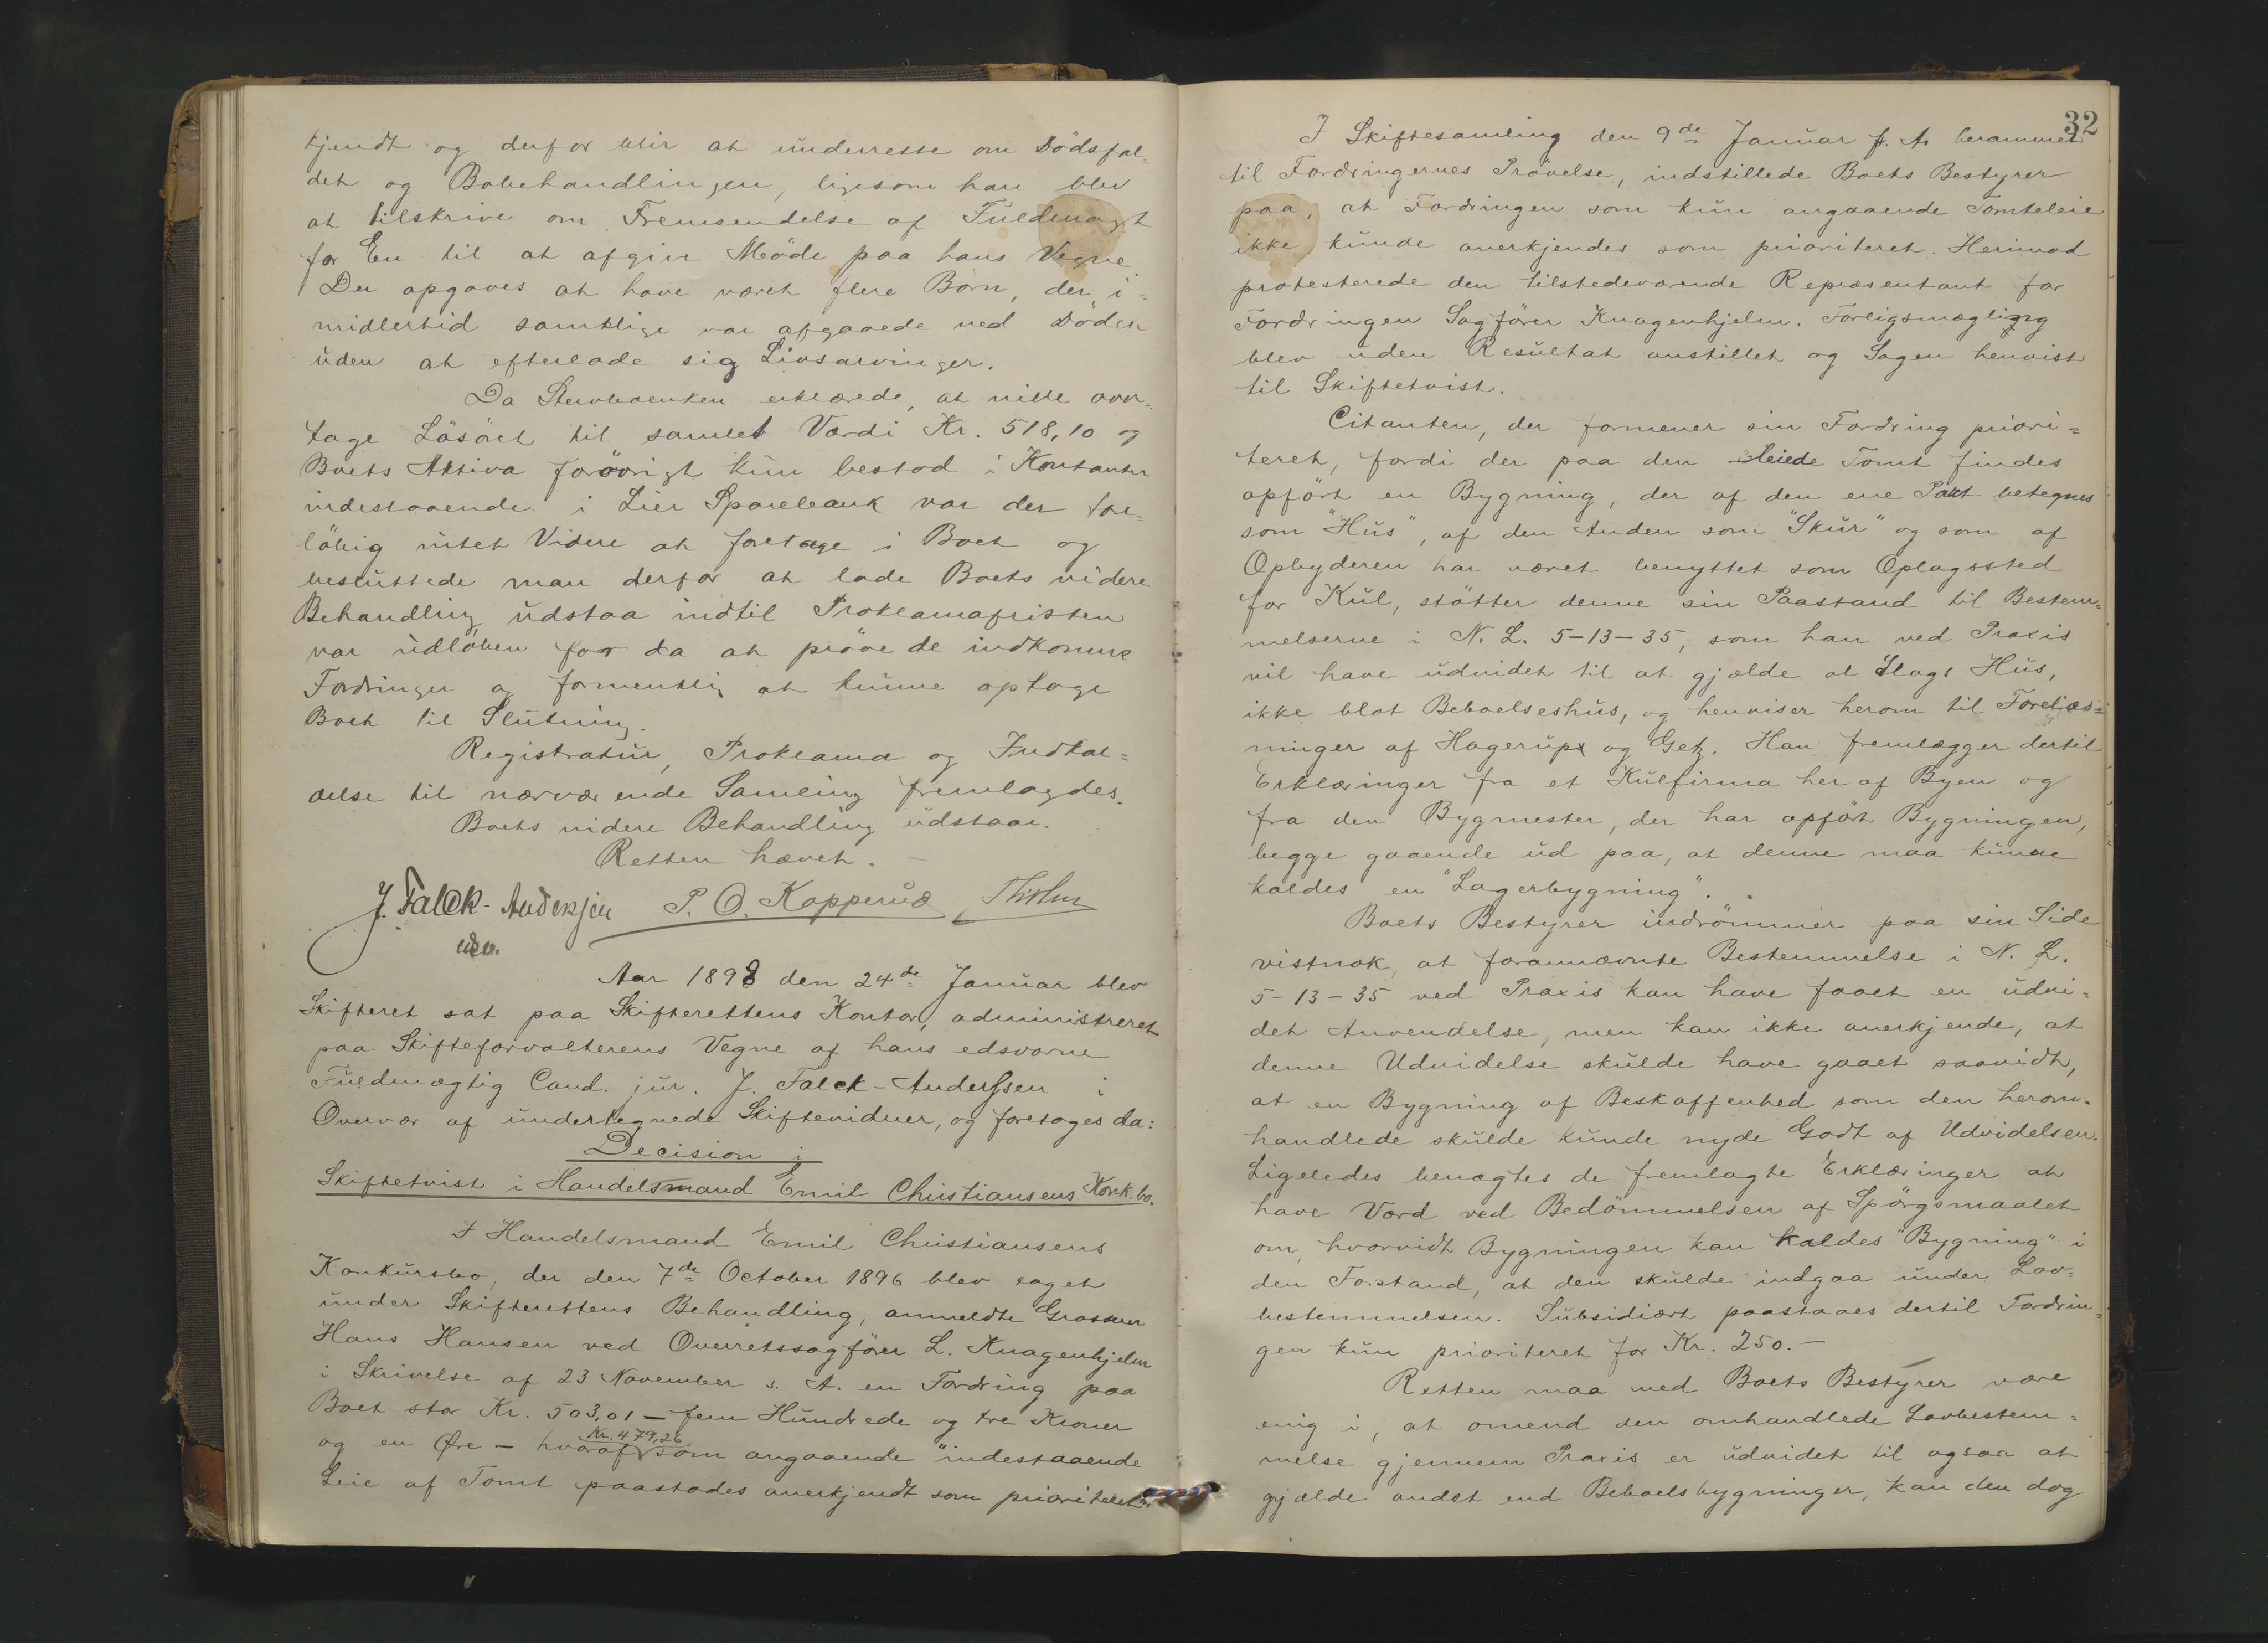 kjendt og derfor blir at underrette om Dödsfal=
det og Bobehandlingen, ligesom han blev
at tilskrive om Fremsendelse af Fuldmagt
for En til at afgive Möde paa hans Vegne.
Der opgaves at have været flere Börn, der i=
midlertid samtlige var afgaaede ved Döden
uden at efterlade sig Livsarvinger.
Da Stervboenken erklærede, at ville over=
tage Lösöret til samlet Værdi Kr. 518,10 og
Boets Aktiva forövrigt kun bestod i Kontanter
indestaaende i Lier Sparebank var der fore=
löbig intet Videre at foretage i Boet og
besluttede man derfor at lade Boets videre
Behandling udstaa indtil Proklamafristen
var udlöben for da at pröve de indkomne
Fordringer og formentlig at kunne optage
Boet til Slutning.
Registratur, Proklama og Indkal=
delse til nærværende Samling fremlagdes.
Boets videre Behandling udstaar.
Retten hævet. —
J. Falck-Andersjen P. O. Kopperud
Aar 1898 den 24de Januar blev
Skifteret sat paa Skifterettens Kontor, administreret
paa Skifteforvalterens Vegne af hans edsvorne
Fuldmægtig Cand. jur. J. Falck-Anderssen i
Overvær af undertegnede Skiftevidner, og foretoges da:
Decision i
Skiftetvist i Handelsmand Emil Christiansens Konk.bo.
I Handelsmand Emil Christiansens
Konkursbo, der den 7de October 1896 blev taget
under Skifterettens Behandling, anmeldte Grosserer
Hans Hansen ved Overretssagförer L. Knagenhjelm
i Skrivelse af 23 November s. A. en Fordring paa
Boet stor Kr. 503,01 — fem Hundrede og tre Kroner
og en Øre — hvoraf Kr. 479,26 som angaaende "indestaaende
Leie af Tomt paastodes anerkjendt som prioriteret".
32
I Skiftesamling den 9de Januar f. A. berammet
til Fordringernes Prövelse, indstillede Boets Bestyrer
paa, at Fordringen som kun angaaende Tomteleie
ikke kunde anerkjendes som prioriteret. Herimod
protesterede den tilstedeværende Repræsentant for
Fordringen Sagförer Knagenhjelm. Forligsmægling
blev uden Resultat anstillet og Sagen henvist
til Skiftetvist.
Citanten, der formener sin Fordring priori=
teret, fordi der paa den leiede Tomt findes
opfört en Bygning, der af den ene Part betegnes
som "Hus", af den Anden som "Skur" og som af
Opbyderen har været benyttet som Oplagssted
for Kul, stötter denne sin Paastand til Bestem=
melserne i N. L. 5-13-35, som han ved Praxis
vil have udvidet til at gjælde al Slags Hus,
ikke blot Beboelseshus, og henviser herom til Forelæs=
ninger af Hagerup og Getz. Han fremlægger dertil
Erklæringer fra et Kulfirma her af Byen og
fra den Bygmester, der har opfört Bygningen,
begge gaaende ud paa, at denne maa kunne
kaldes en "Lagerbygning".
Boets Bestyrer indrömmer paa sin Side
vistnok, at forannævnte Bestemmelse i N. L.
5-13-35 ved Praxis kan have faaet en udvi=
det Anvendelse, men kan ikke anerkjende, at
denne Udvidelse skulde have gaaet saavidt,
at en Bygning af Beskaffenhed som den herom=
handlede skulde kunde nyde Godt af Udvidelsen.
Ligeledes benægtes de fremlagte Erklæringer at
have Værd ved Bedömmelsen af Spörgsmaalet
om, hvorvidt Bygningen kan kaldes "Bygning" i
den Forstand, at den skulde indgaa under Lov=
bestemmelsen. Subsidiært paastaaes dertil Fordrin=
gen kun prioriteret for Kr. 250.—
Retten maa med Boets Bestyrer være
enig i, at omend den omhandlede Lovbestem=
melse gjennem Praxis er udvidet til ogsaa at
gjælde andet end Beboelsbygninger, kan den dog